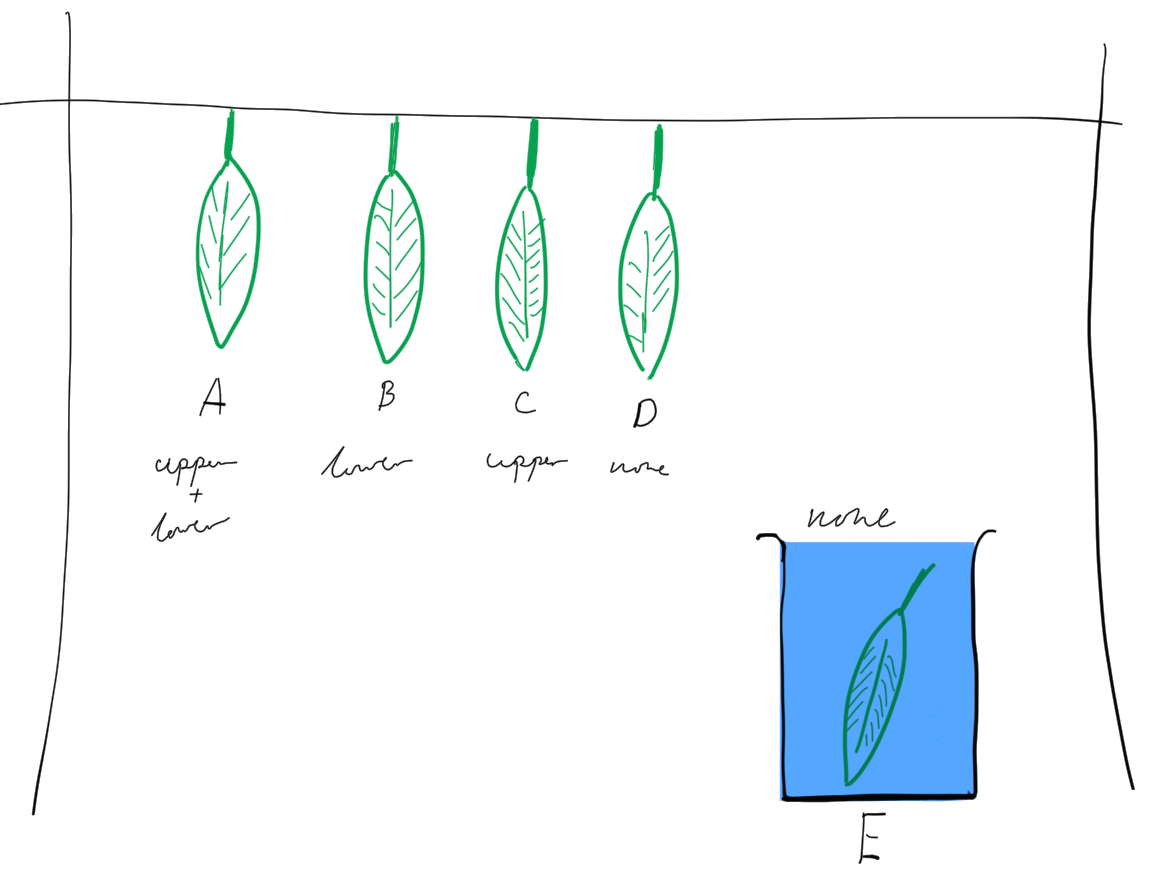 A
B
C
D
upper
+
lower
lower
upper
none
none
E